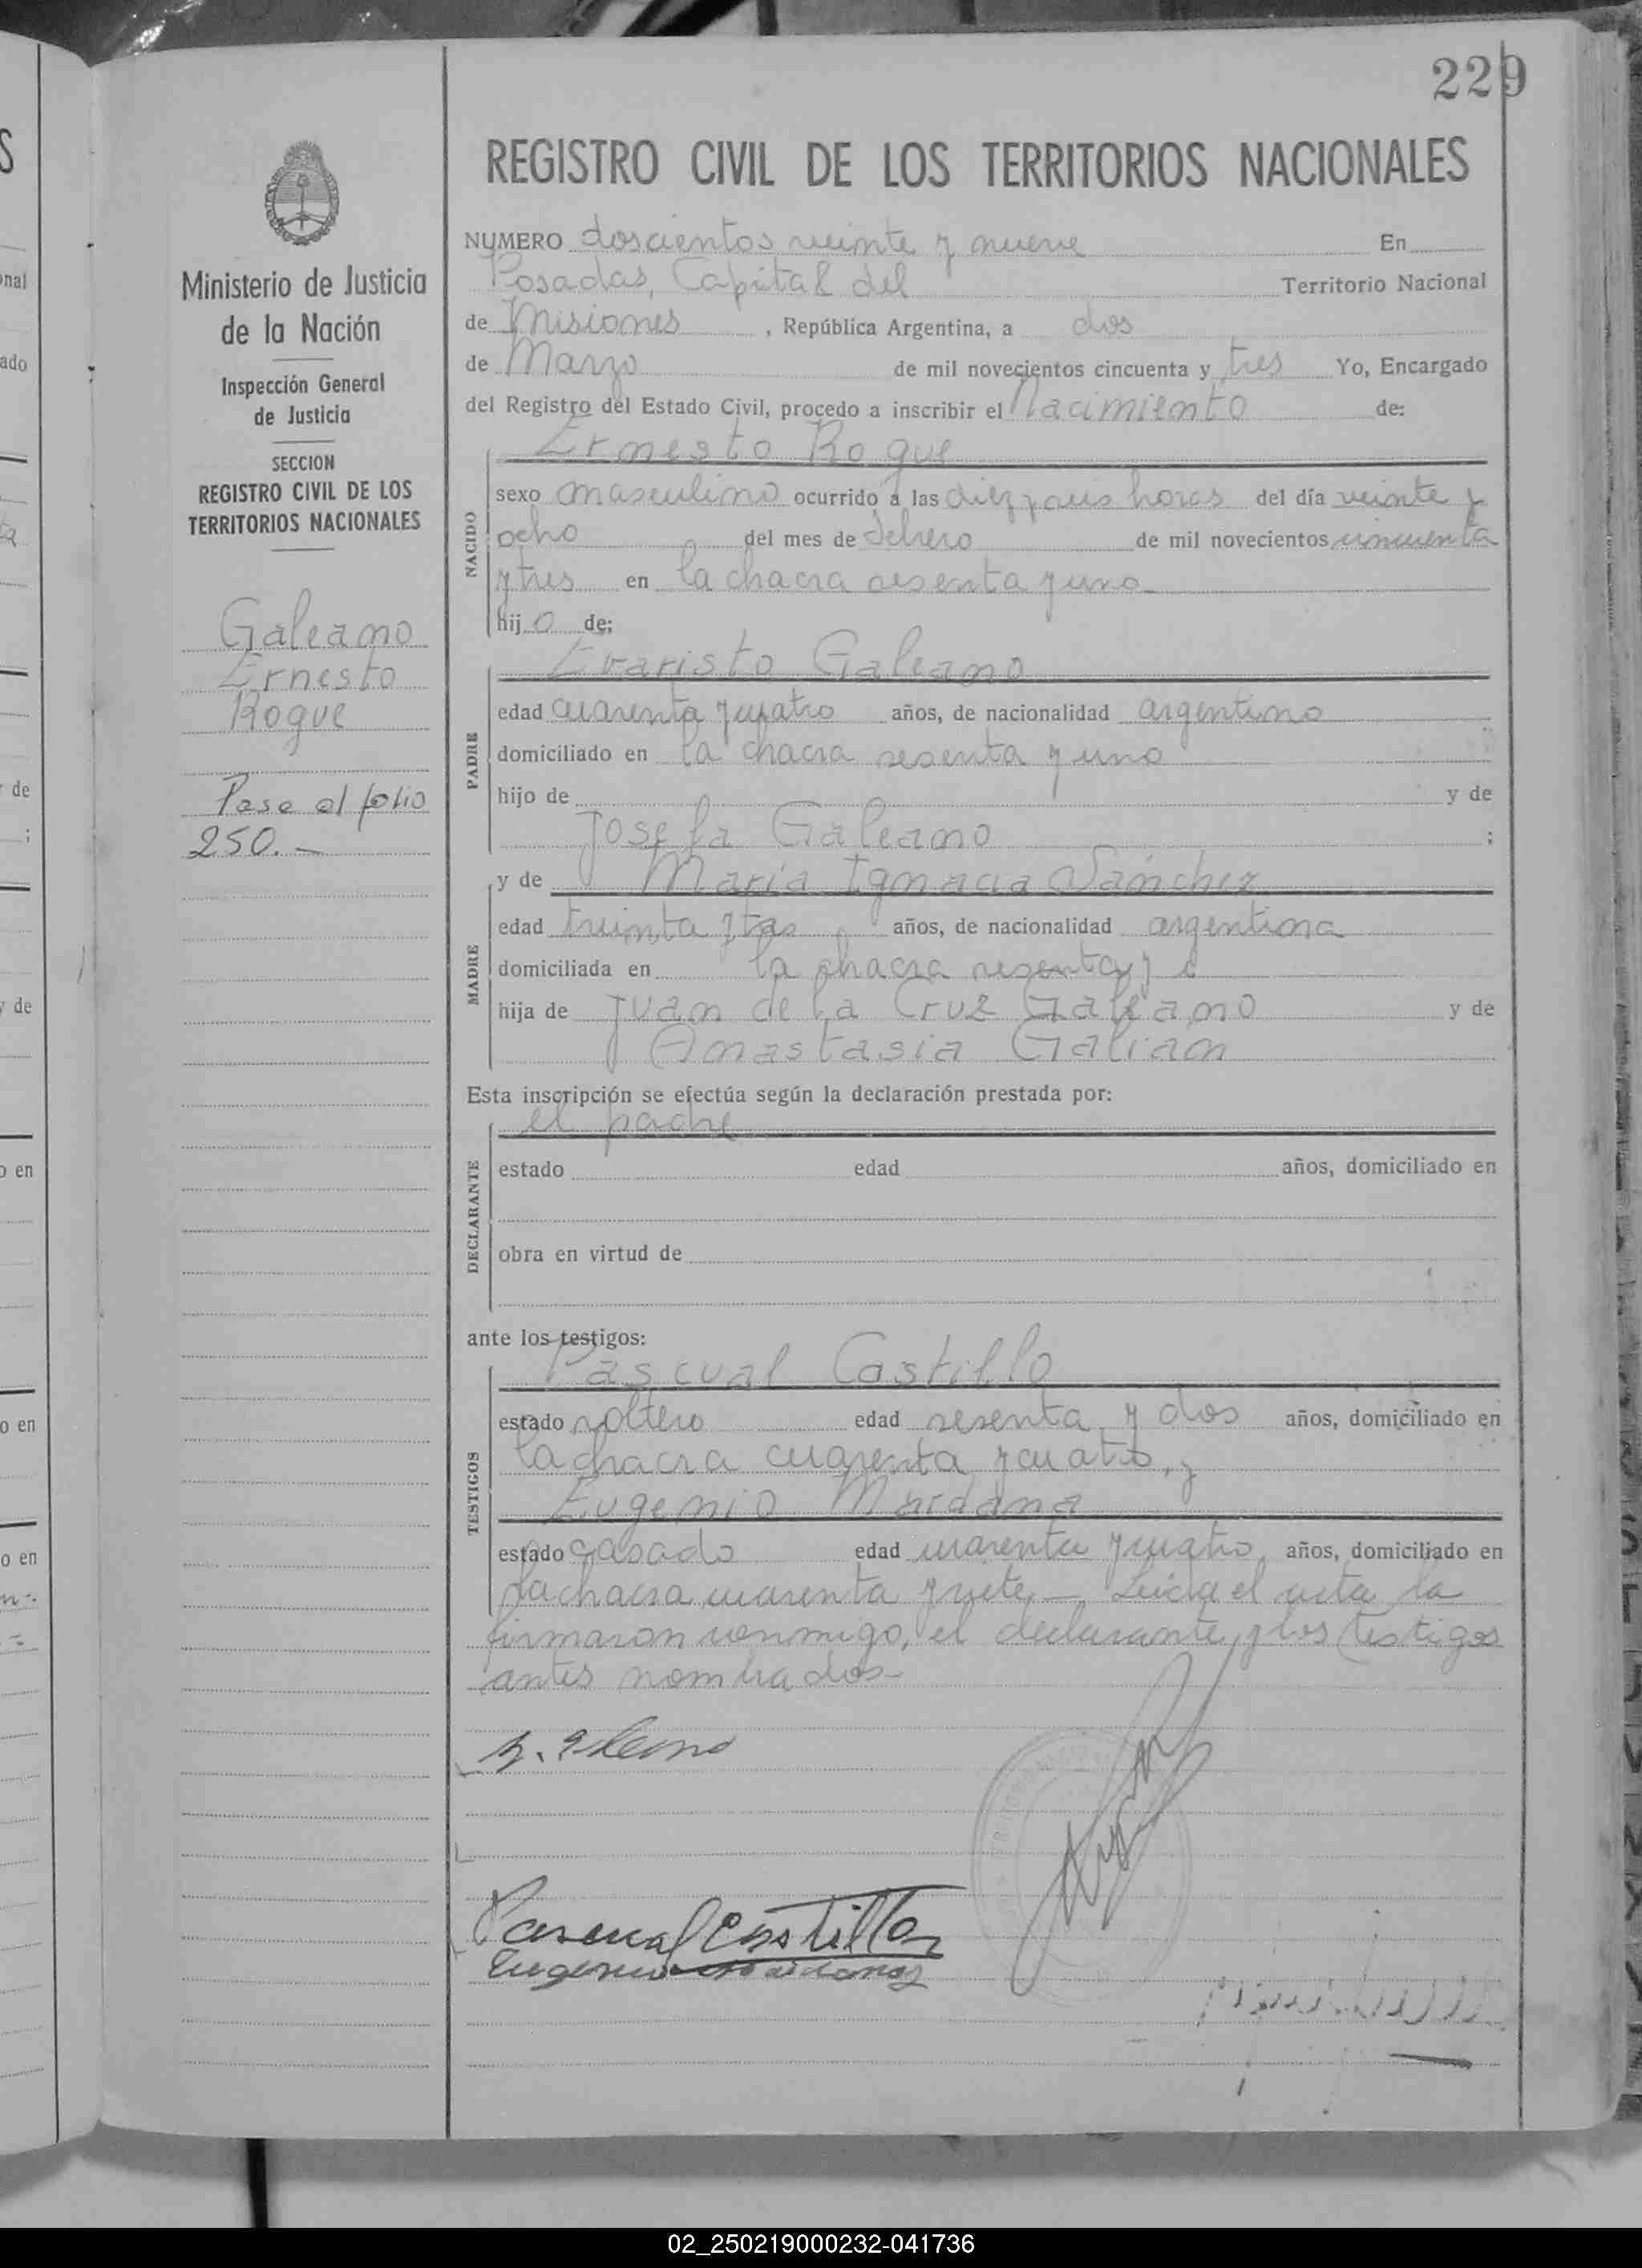 229
REGISTRO CIVIL DE LOS TERRITORIOS NACIONALES
Ministerio de Justicia
de la Nación
Inspección General
de Justicia
SECCION
REGISTRO CIVIL DE LOS
TERRITORIOS NACIONALES
Galeano
Ernesto
Roque
Pase al folio
250.-
NUMERO doscientos veinte y nueve En
Posadas, Capital del Territorio Nacional
de Misiones, República Argentina, a dos
de Marzo de mil novecientos cincuenta y tres Yo, Encargado
del Registro del Estado Civil, procedo a inscribir el Nacimiento de:
Ernesto Roque
NACIDO
sexo masculino ocurrido a las diez y seis horas del día veinte y
ocho del mes de Febrero de mil novecientos cincuenta
y tres en la chacra sesenta y uno
hijo de:
PADRE
Evaristo Galeano
edad cuarenta y cuatro años, de nacionalidad argentino
domiciliado en la chacra sesenta y uno
hijo de y de
Josefa Galeano ;
MADRE
y de María Ignacia Sánchez
edad treinta y tres años, de nacionalidad argentina
domiciliada en la chacra sesenta y
hija de Juan de la Cruz Galeano y de
Anastasia Galian
Esta inscripción se efectúa según la declaración prestada por:
DECLARANTE
el padre
estado edad años, domiciliado en
obra en virtud de
ante los testigos:
TESTIGOS
Pascual Castillo
estado soltero edad sesenta y dos años, domiciliado en
la chacra cuarenta y cuatro, y
Eugenio Maidana
estado casado edad cuarenta y cuatro años, domiciliado en
la chacra cuarenta y siete.- Leída el acta la
firmaron conmigo, el declarante, y los testigos
antes nombrados-
Pascual Castillo
Eugenio Maidana
02_250219000232-041736